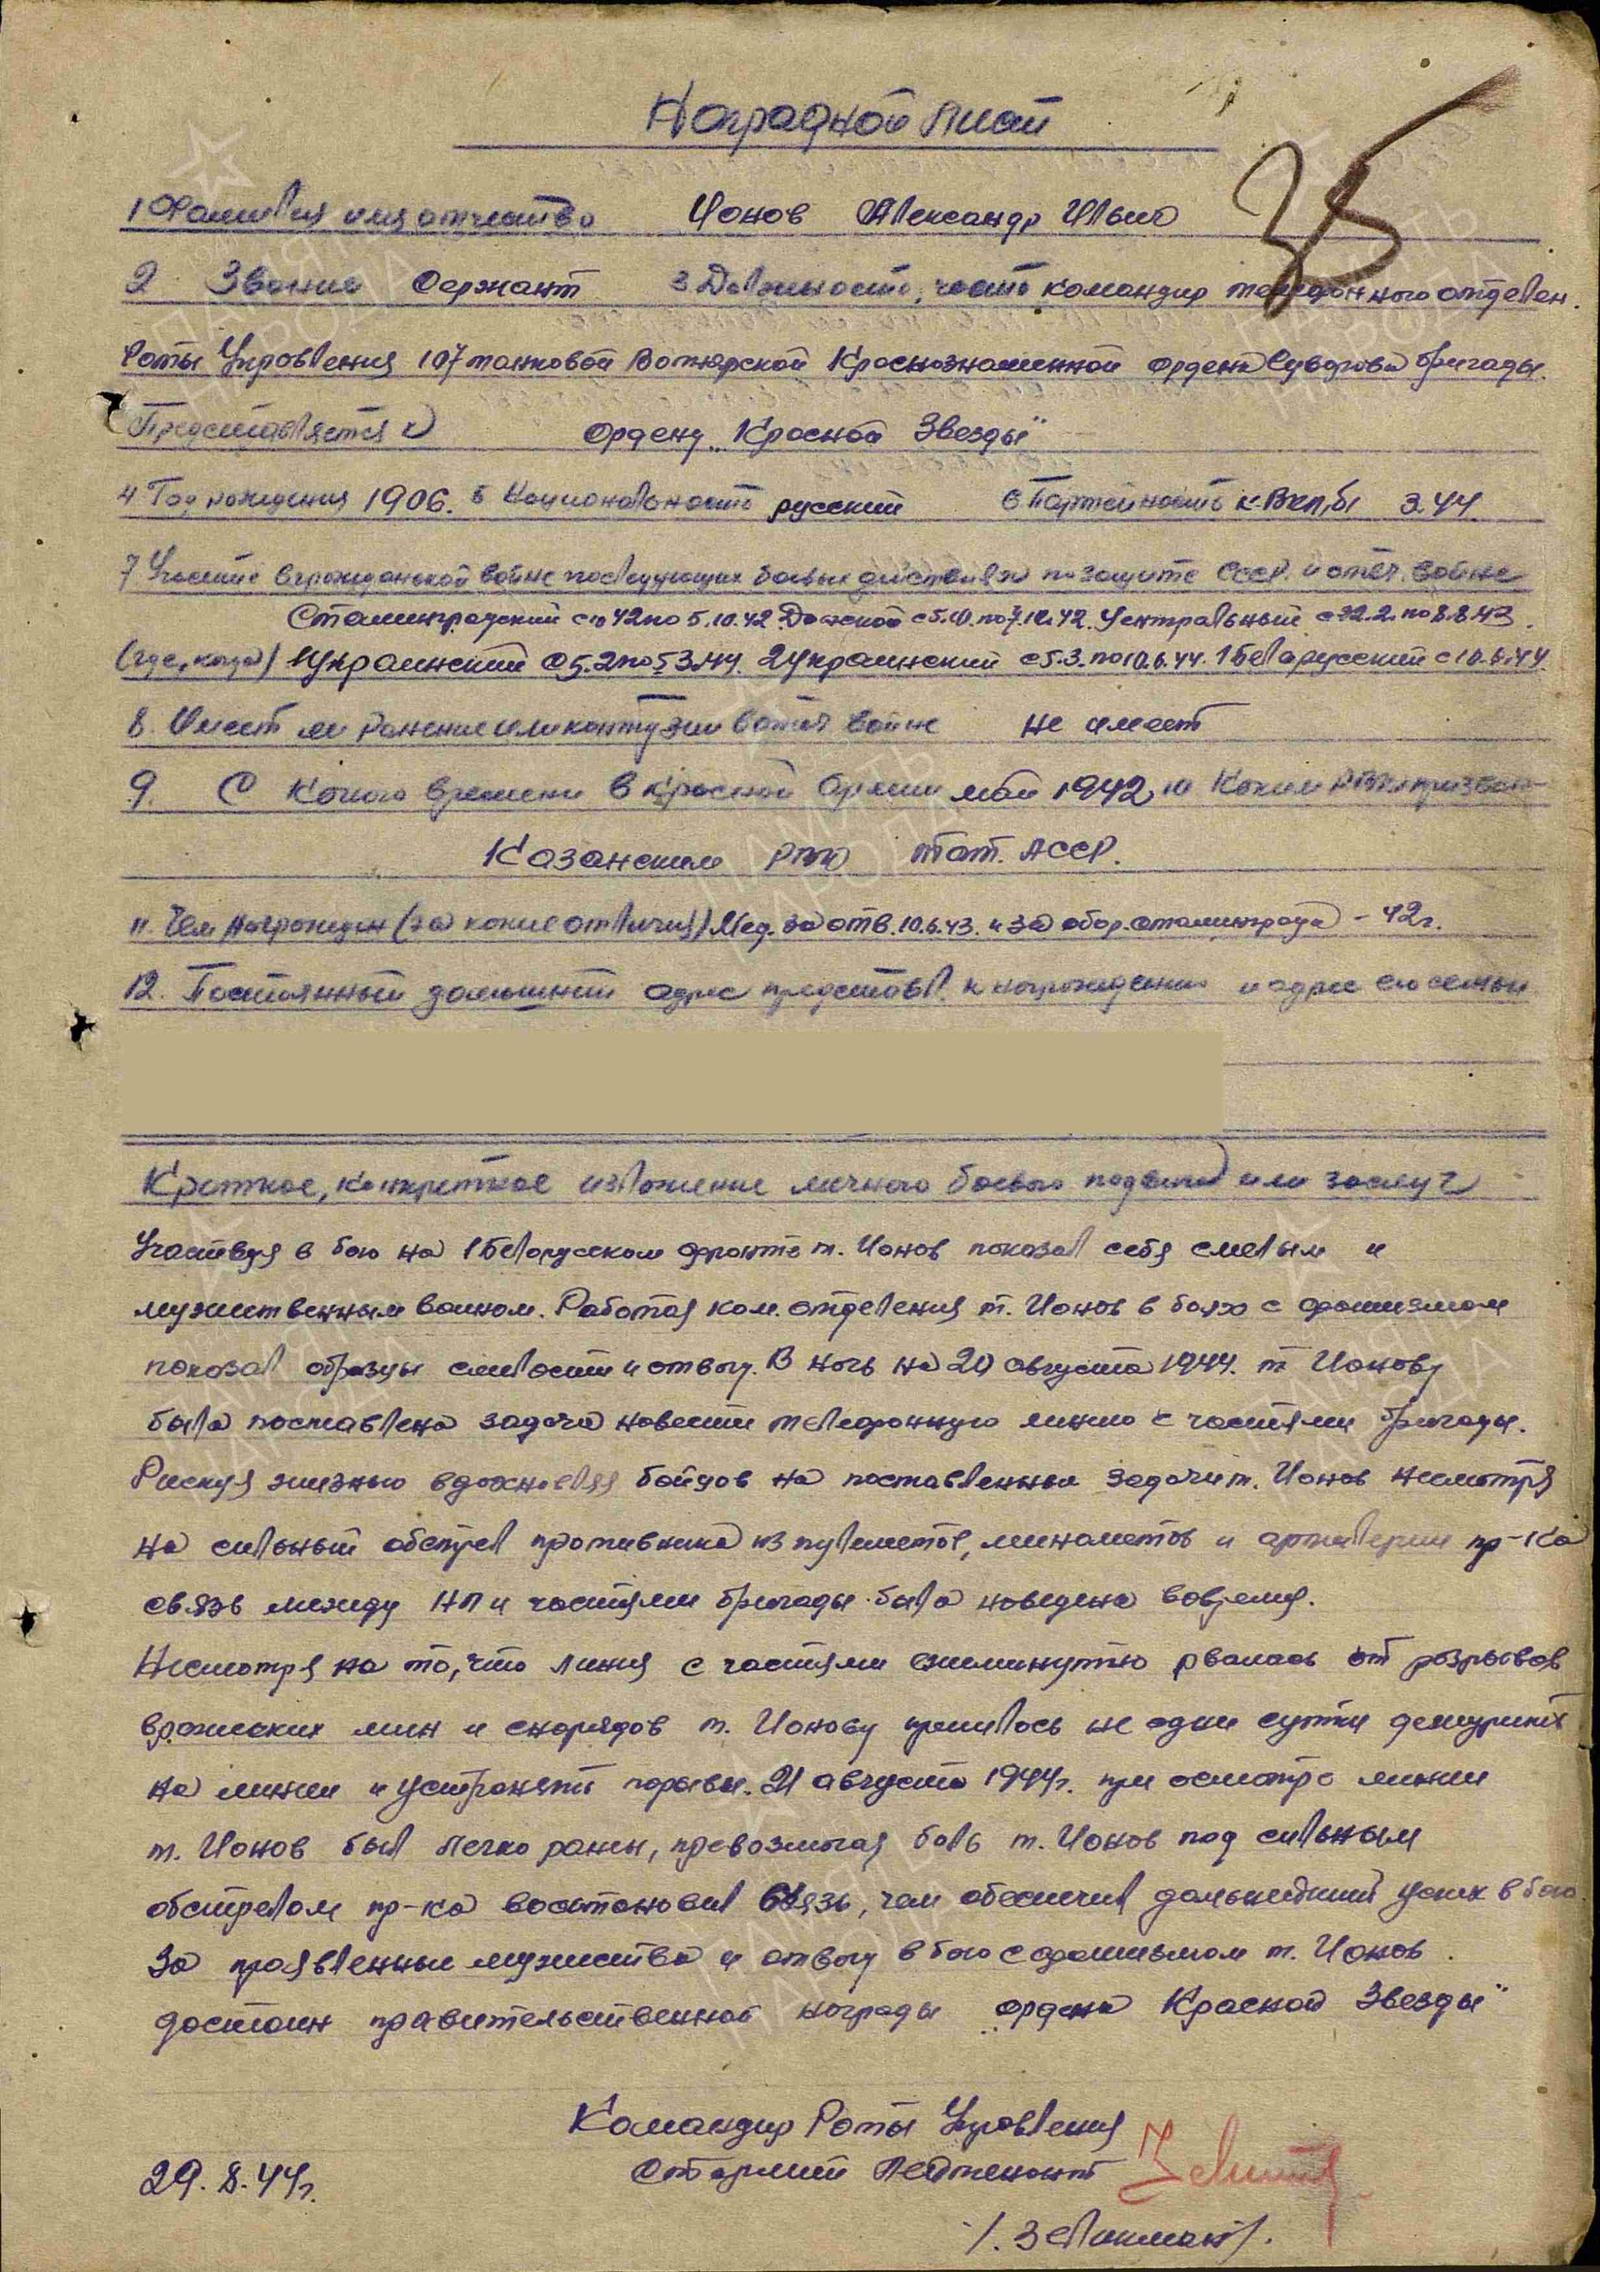 Наградной лист
35
1 Фамилия имя отчество Ионов Александр Ильич
2 Звание Сержант 3 Должность, часть командир телефонного отделен.
Роты Управления 107 танковой Вапнярской Краснознаменной ордена Суворова бригады.
Представляется к ордену „Красной Звезды"
4 Год рождения 1906. 5 Национальность русский 6 Партейность к.ВКП,б, 3.44
7 Участие в гражданской войне последующих боевых действиях по защите СССР и отеч. войне
Сталинградский с 42 по 5.10.42 Донской с 5.10. по Центральный с 22.2. по 8.8.43.
(где, когда) 1 Украинский с 5.2 по 5.3.44. 2 Украинский с 5.3. по 10.6.44. 1 Беларусский с 10.6.44
8. Имеет ли ранение или контузии в отеч войне не имеет
9. С какого времени в Красной Армии май 1942 10 Каким РВК призван
Казанским РВК Тат. АССР.
11. Чем награжден (за какие отличия) Мед. За отв. 10.6.43. и За обор. Сталинграда - 42 г.
12. Постоянный домашний адрес представл. к награждению и адрес его семьи
Краткое, конкретное изложение личного боевого подвига или заслуг
Участвуя в бою на 1 Белорусском фронте т. Ионов показал себя смелым и
мужественным воином. Работая ком. отделения т. Ионов в боях с фашизмом
показал образцы смелости и отвагу. В ночь на 20 августа 1944. т Ионову
была поставлена задача навести телефонную линию с частями бригады.
Рискуя жизнью вдохновляя бойцов на поставленные задачи т. Ионов несмотря
на сильный обстрел противника из пулеметов, минометов и артилерии пр-ка
связь между НП и частями бригады была наведена вовремя.
Несмотря на то, что линия с частями ежеминутно рвалась от разрывов
вражеских мин и снарядов т. Ионову пришлось не одни сутки дежурить
на линии и устранять порывы. 21 августа 1944г. при осмотре линии
т. Ионов был легко ранен, превозмогая боль т. Ионов под сильным
обстрелом пр-ка востановил связь, чем обеспечил дальнейший успех в бою.
За проявленные мужество и отвагу в бою с фашизмом т. Ионов
достоин правительственной награды „ордена Красной Звезды"
Командир Роты Управления
29.8.44г. Старший Лейтенант
/. Зеликман /.